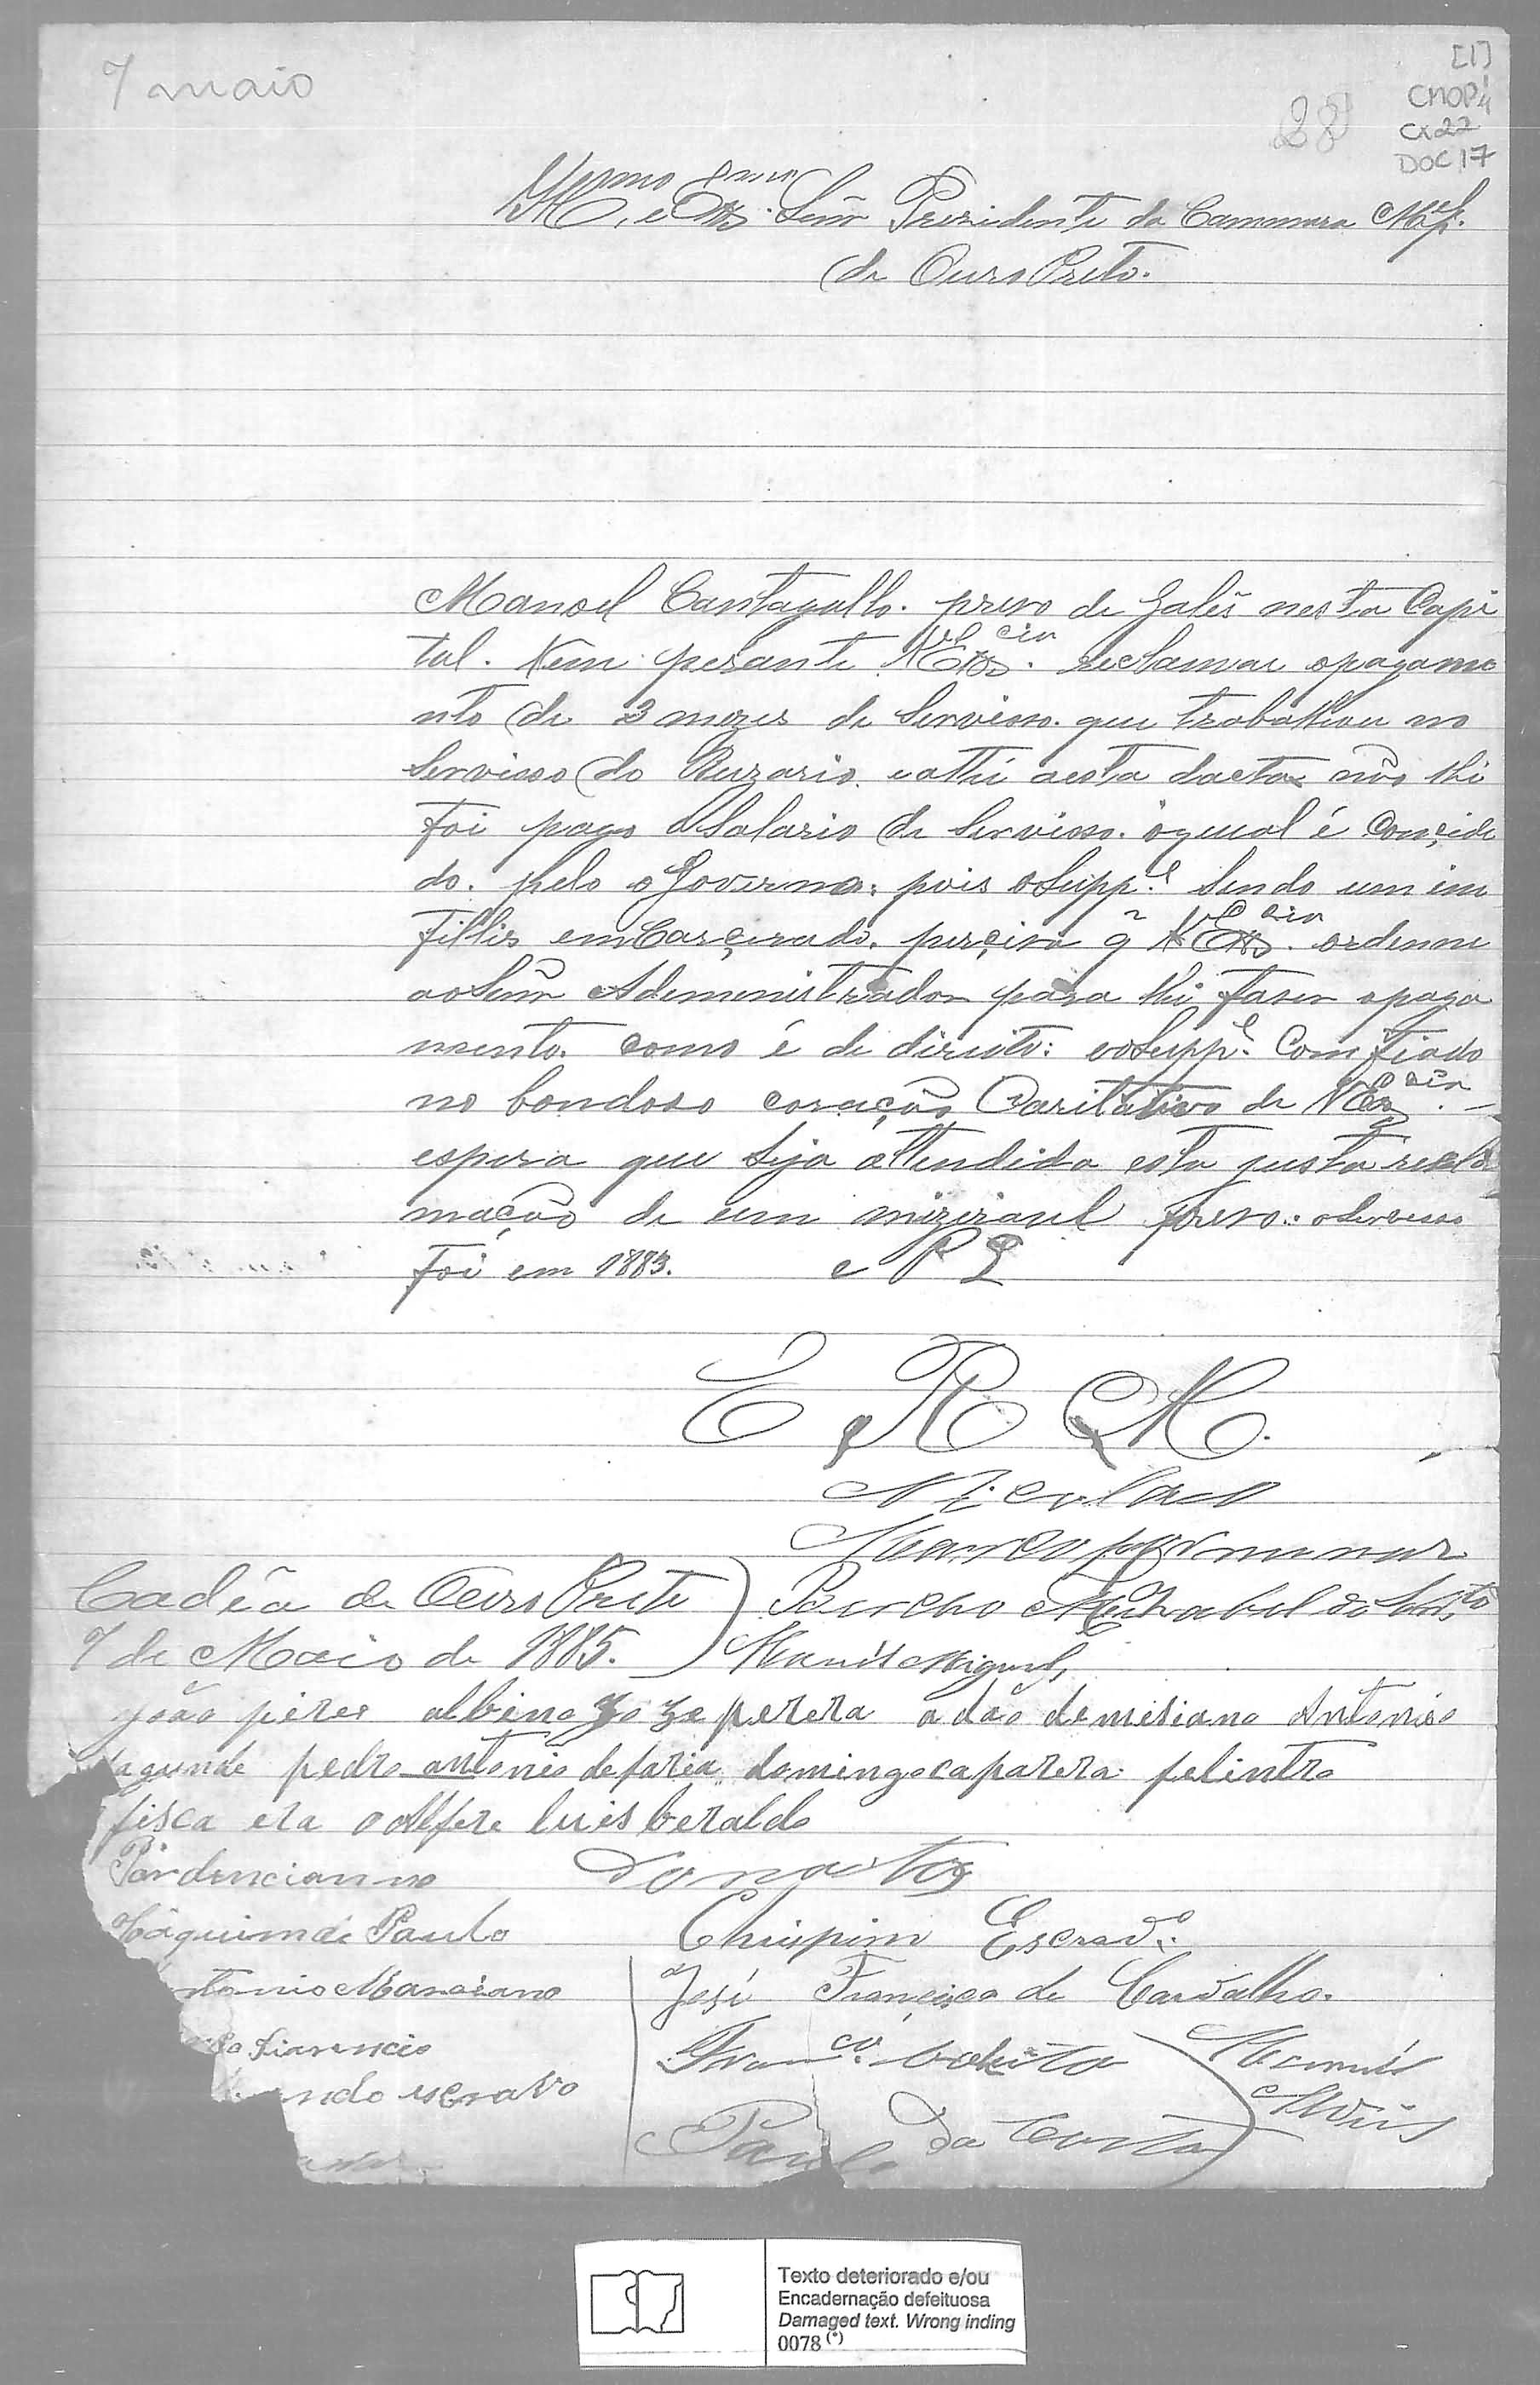 7 maio
[1]
CMOP
CX 22
DOC 17
28
Illmo e Exmo Senr Prezidente da Cammara Mal.
de Ouro Preto.
Manoel Cantagallo. prezo de Galés nesta Capi
tal. Vem perante V Excia. reclamar o pagame
nto de 3 mezes de Servisso. que trabalhou no
Servisso do Ruzario. e athé aesta dacta não lhi
foi pago o Salario de Servisso. o qual é Conçidi
do. pelo o Governo: pois o Suppe. Sendo um im
fillis emCarçerado. perçiza q̃ V Excia. ordenne
ao SenrAdemenistrador para lhi fazer o paga
mento. como é de direito: eo Suppe. Comfiado
no bondoso coração Caritativo de V Excia. —
espera que Sija attendida esta justa recla
mação de um mizeravel prezo: o Servisso
foi em 1883. e P I
E R M.
Nicolao
Cadêa de Ouro Preto
7 de Maio de 1885.
Manoel Miguel,
joão pires albino Joze perera adão demisiano Antonio
fagunde pedro antonio defaria domingo caparera felintro
fisca era o Alfere luis beraldo
Pordencianno Donato
Joaquim de Paulo Chrispim Escravo.
ntonio Marciano José Francisco de Carvalho.
fiarencio Franco. Manoel
ndo escravo Alvis
Paulo da Costa
Texto deteriorado e/ou
Encadernação defeituosa
Damaged text. Wrong inding
0078 (*)